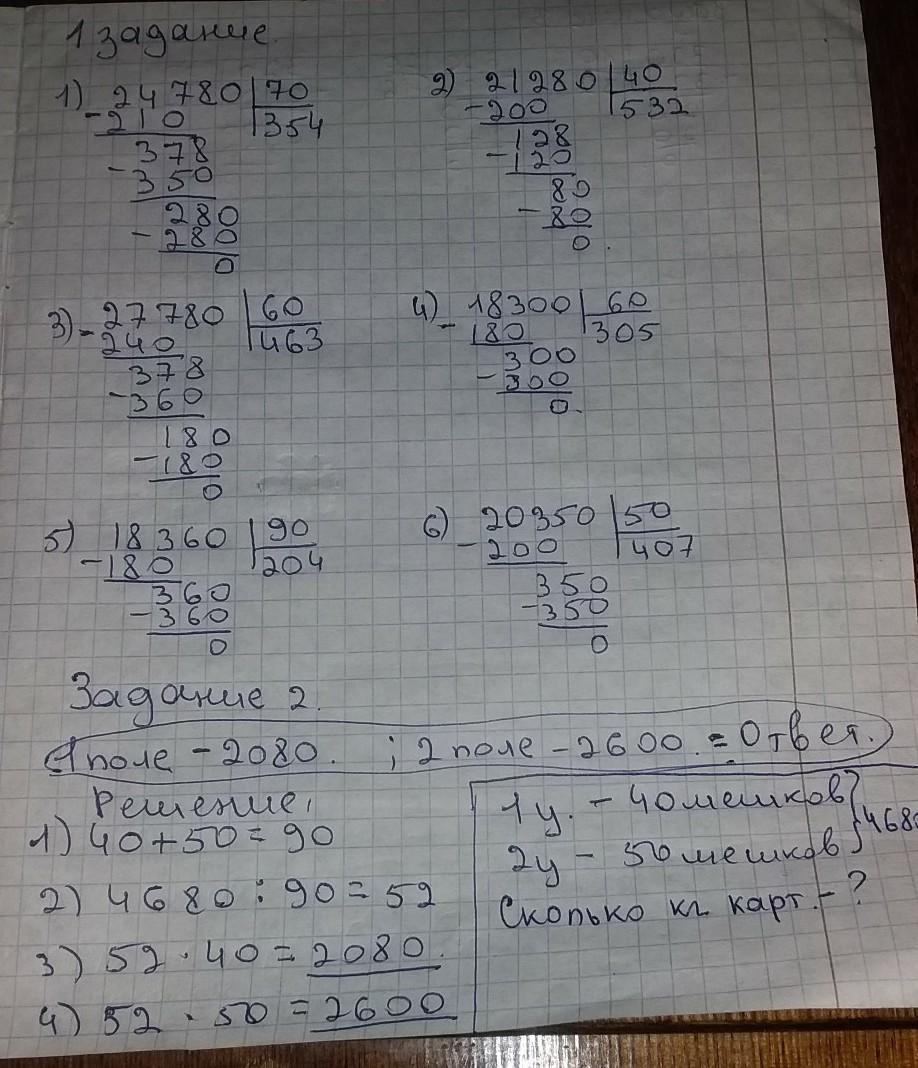 1 задание.
1) 24780 | 70
- 210 | 354
378
- 350
280
- 280
0
2) 21280 | 40
- 200 | 532
128
- 120
80
- 80
0.
3) - 27780 | 60
240 | 463
378
- 360
180
- 180
0
4) 18300 | 60
- 180 | 305
300
- 300
0.
5) 18360 | 90
- 180 | 204
360
- 360
0
6) 20350 | 50
- 200 | 407
350
- 350
0
Задание 2.
1 поле - 2080. ; 2 поле - 2600. = Ответ.
Решение,
1) 40 + 50 = 90
2) 4680 : 90 = 52
3) 52 · 40 = 2080.
4) 52 · 50 = 2600
1у. - 40 мешков } 4680
2у - 50 мешков
Сколько кг карт. - ?